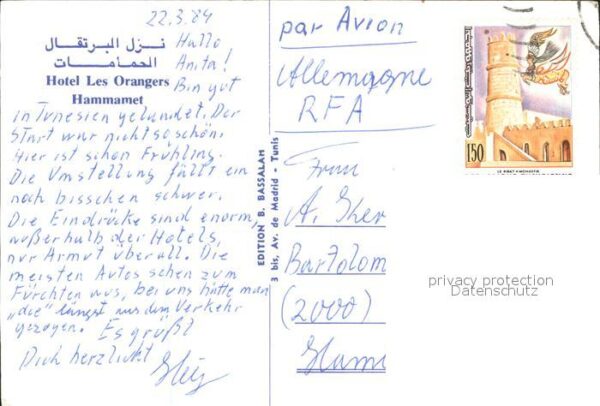 22.3.84
نزل البرتقال
الحمامات
Hotel Les Orangers
Hammamet
Hallo
Anita!
Bin gut
in Tunesien gelandet. Der
Start war nicht so schön.
Hier ist schon Frühling.
Die Umstellung fällt ein
noch bisschen schwer.
Die Eindrücke sind enorm,
außerhalb der Hotels,
nur Armut überall. Die
meisten Autos sehen zum
Fürchten aus, bei uns hätte man
"die" längst aus dem Verkehr
gezogen. Es grüßt
Dich herzlichst
EDITION B. BASSALAH
3 bis, Av. de Madrid - Tunis
par Avion
Allemagne
RFA
Frau
A.
(2000)
150
privacy protection
Datenschutz